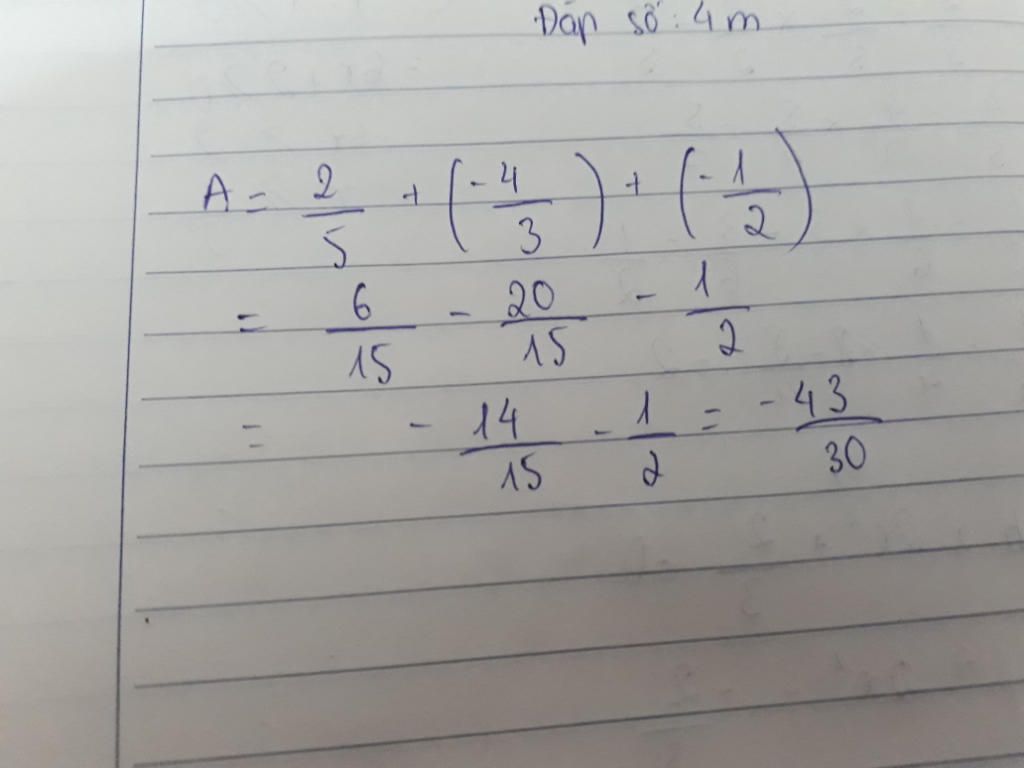 Đáp số: 4 m
A = 2/5 + (-4/3) + (-1/2)
= 6/15 - 20/15 - 1/2
= - 14/15 - 1/2 = -43/30